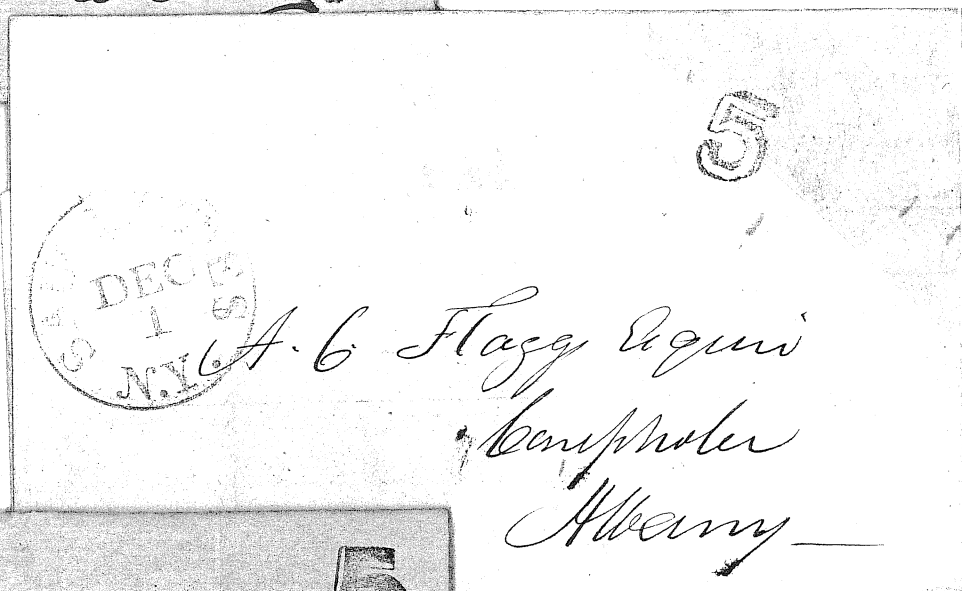 5
DEC
1
N.Y.
A. C. Flagg Esquire
Comptroller
Albany
5